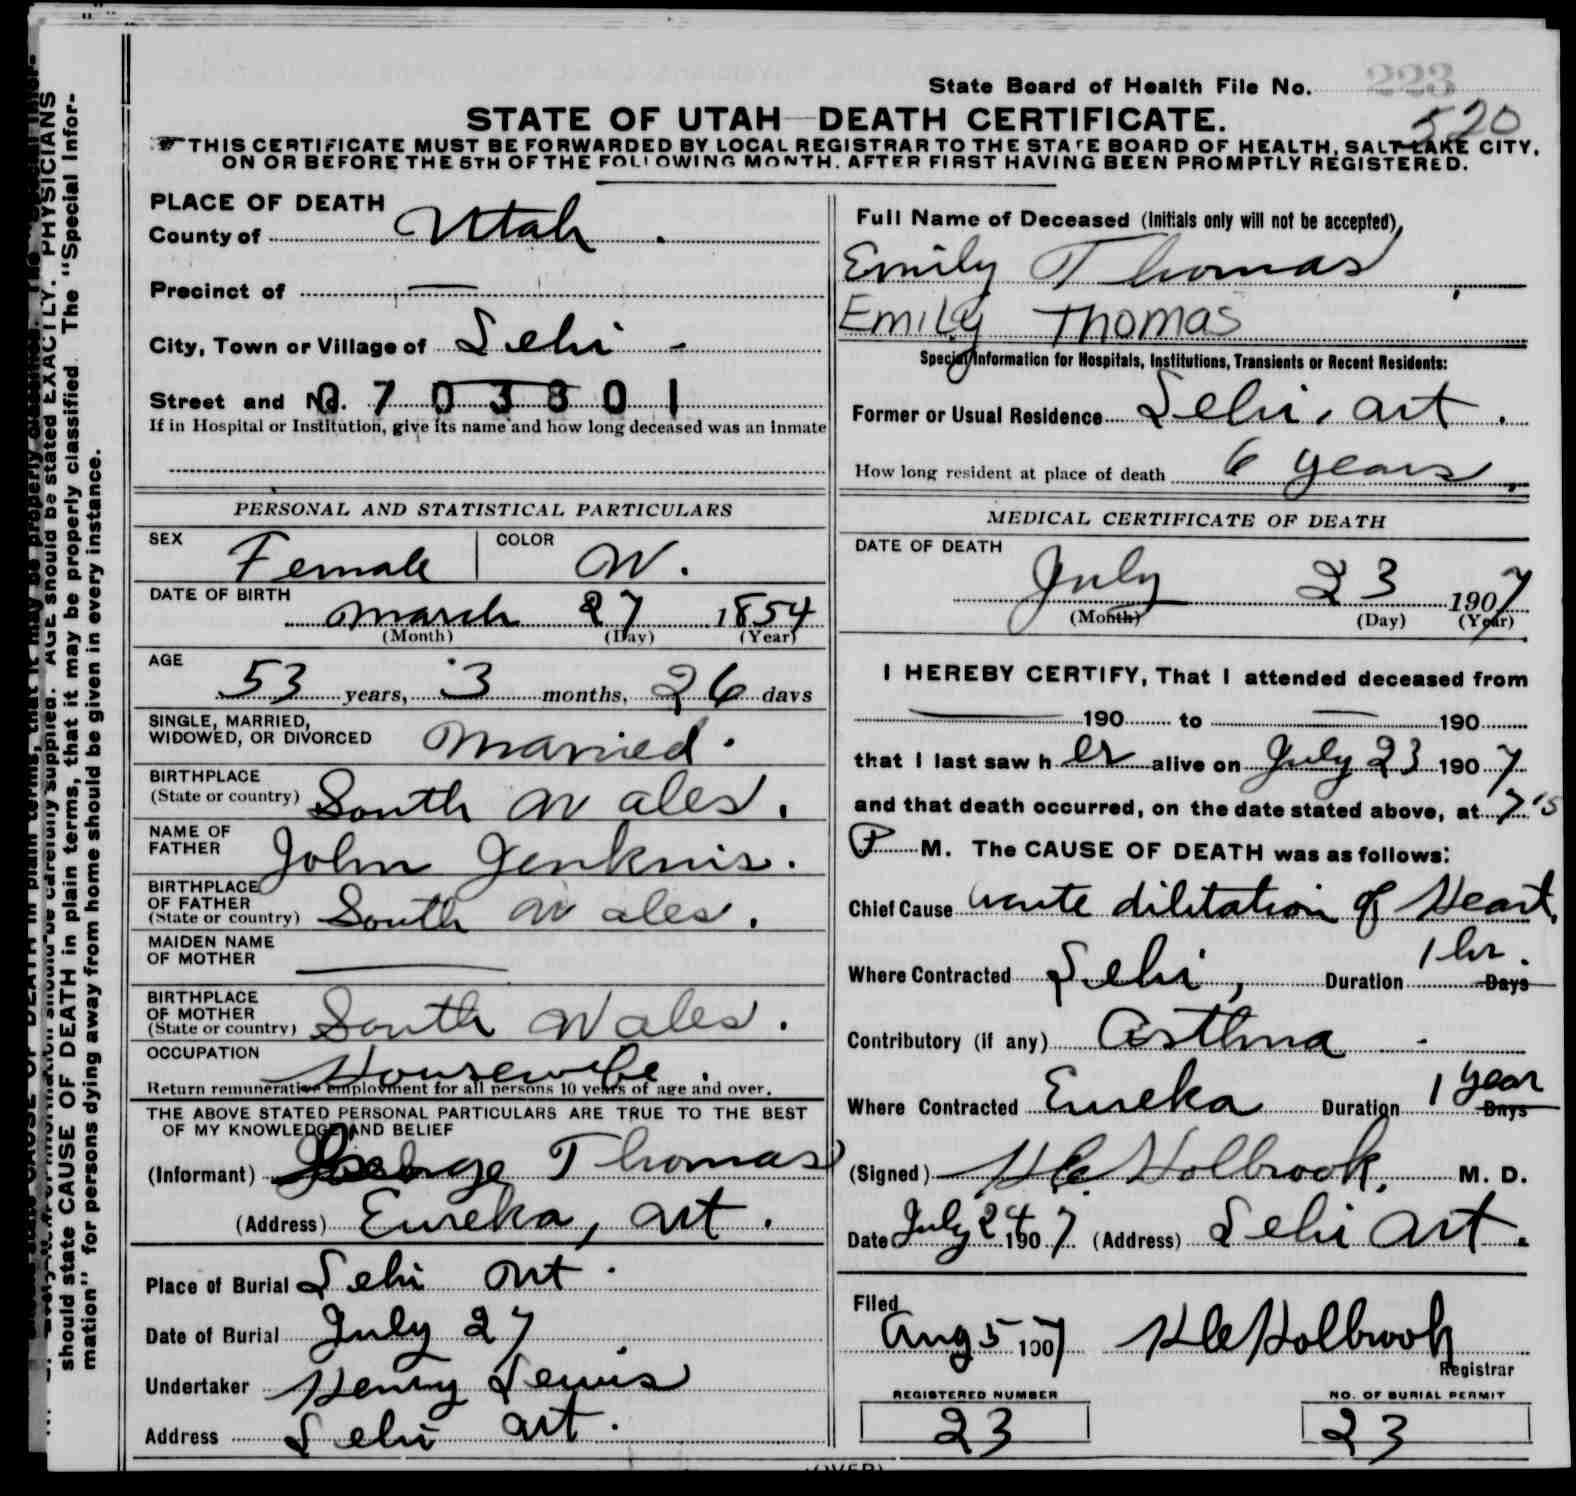 State Board of Health File No. 223
520
STATE OF UTAH—DEATH CERTIFICATE.
THIS CERTIFICATE MUST BE FORWARDED BY LOCAL REGISTRAR TO THE STATE BOARD OF HEALTH, SALT LAKE CITY,
ON OR BEFORE THE 5TH OF THE FOLLOWING MONTH, AFTER FIRST HAVING BEEN PROMPTLY REGISTERED.
PLACE OF DEATH
County of Utah
Precinct of —
City, Town or Village of Lehi
Street and No. 0703801
If in Hospital or Institution, give its name and how long deceased was an inmate
PERSONAL AND STATISTICAL PARTICULARS
SEX Female COLOR W.
DATE OF BIRTH
March 27 1854
(Month) (Day) (Year)
AGE
53 years, 3 months, 26 days
SINGLE, MARRIED,
WIDOWED, OR DIVORCED Married.
BIRTHPLACE
(State or country) South Wales.
NAME OF
FATHER John Jenkins.
BIRTHPLACE
OF FATHER
(State or country) South Wales.
MAIDEN NAME
OF MOTHER —
BIRTHPLACE
OF MOTHER
(State or country) South Wales.
OCCUPATION
Housewife.
Return remunerative employment for all persons 10 years of age and over.
THE ABOVE STATED PERSONAL PARTICULARS ARE TRUE TO THE BEST
OF MY KNOWLEDGE AND BELIEF
(Informant) George Thomas
(Address) Eureka, Ut.
Place of Burial Lehi Ut.
Date of Burial July 27
Undertaker Henry Lewis
Address Lehi Ut.
Full Name of Deceased (Initials only will not be accepted),
Emily Thomas,
Emily Thomas
Special Information for Hospitals, Institutions, Transients or Recent Residents:
Former or Usual Residence Lehi, Ut.
How long resident at place of death 6 years,
MEDICAL CERTIFICATE OF DEATH
DATE OF DEATH
July 23 1907
(Month) (Day) (Year)
I HEREBY CERTIFY, That I attended deceased from
— 190 to — 190
that I last saw her alive on July 23 1907
and that death occurred, on the date stated above, at 7
P M. The CAUSE OF DEATH was as follows:
Chief Cause acute dilitation of Heart.
Where Contracted Lehi, Duration 1 hr. Days
Contributory (if any) Asthma
Where Contracted Eureka Duration 1 year Days
(Signed) H C Holbrook, M. D.
Date July 24 1907 (Address) Lehi Ut.
Filed
Aug 5 1907 H C Holbrook
Registrar
REGISTERED NUMBER
23
NO. OF BURIAL PERMIT
23
(OVER)
AGE should be stated EXACTLY. PHYSICIANS
should state CAUSE OF DEATH in plain terms, that it may be properly classified. The "Special Infor-
mation" for persons dying away from home should be given in every instance.